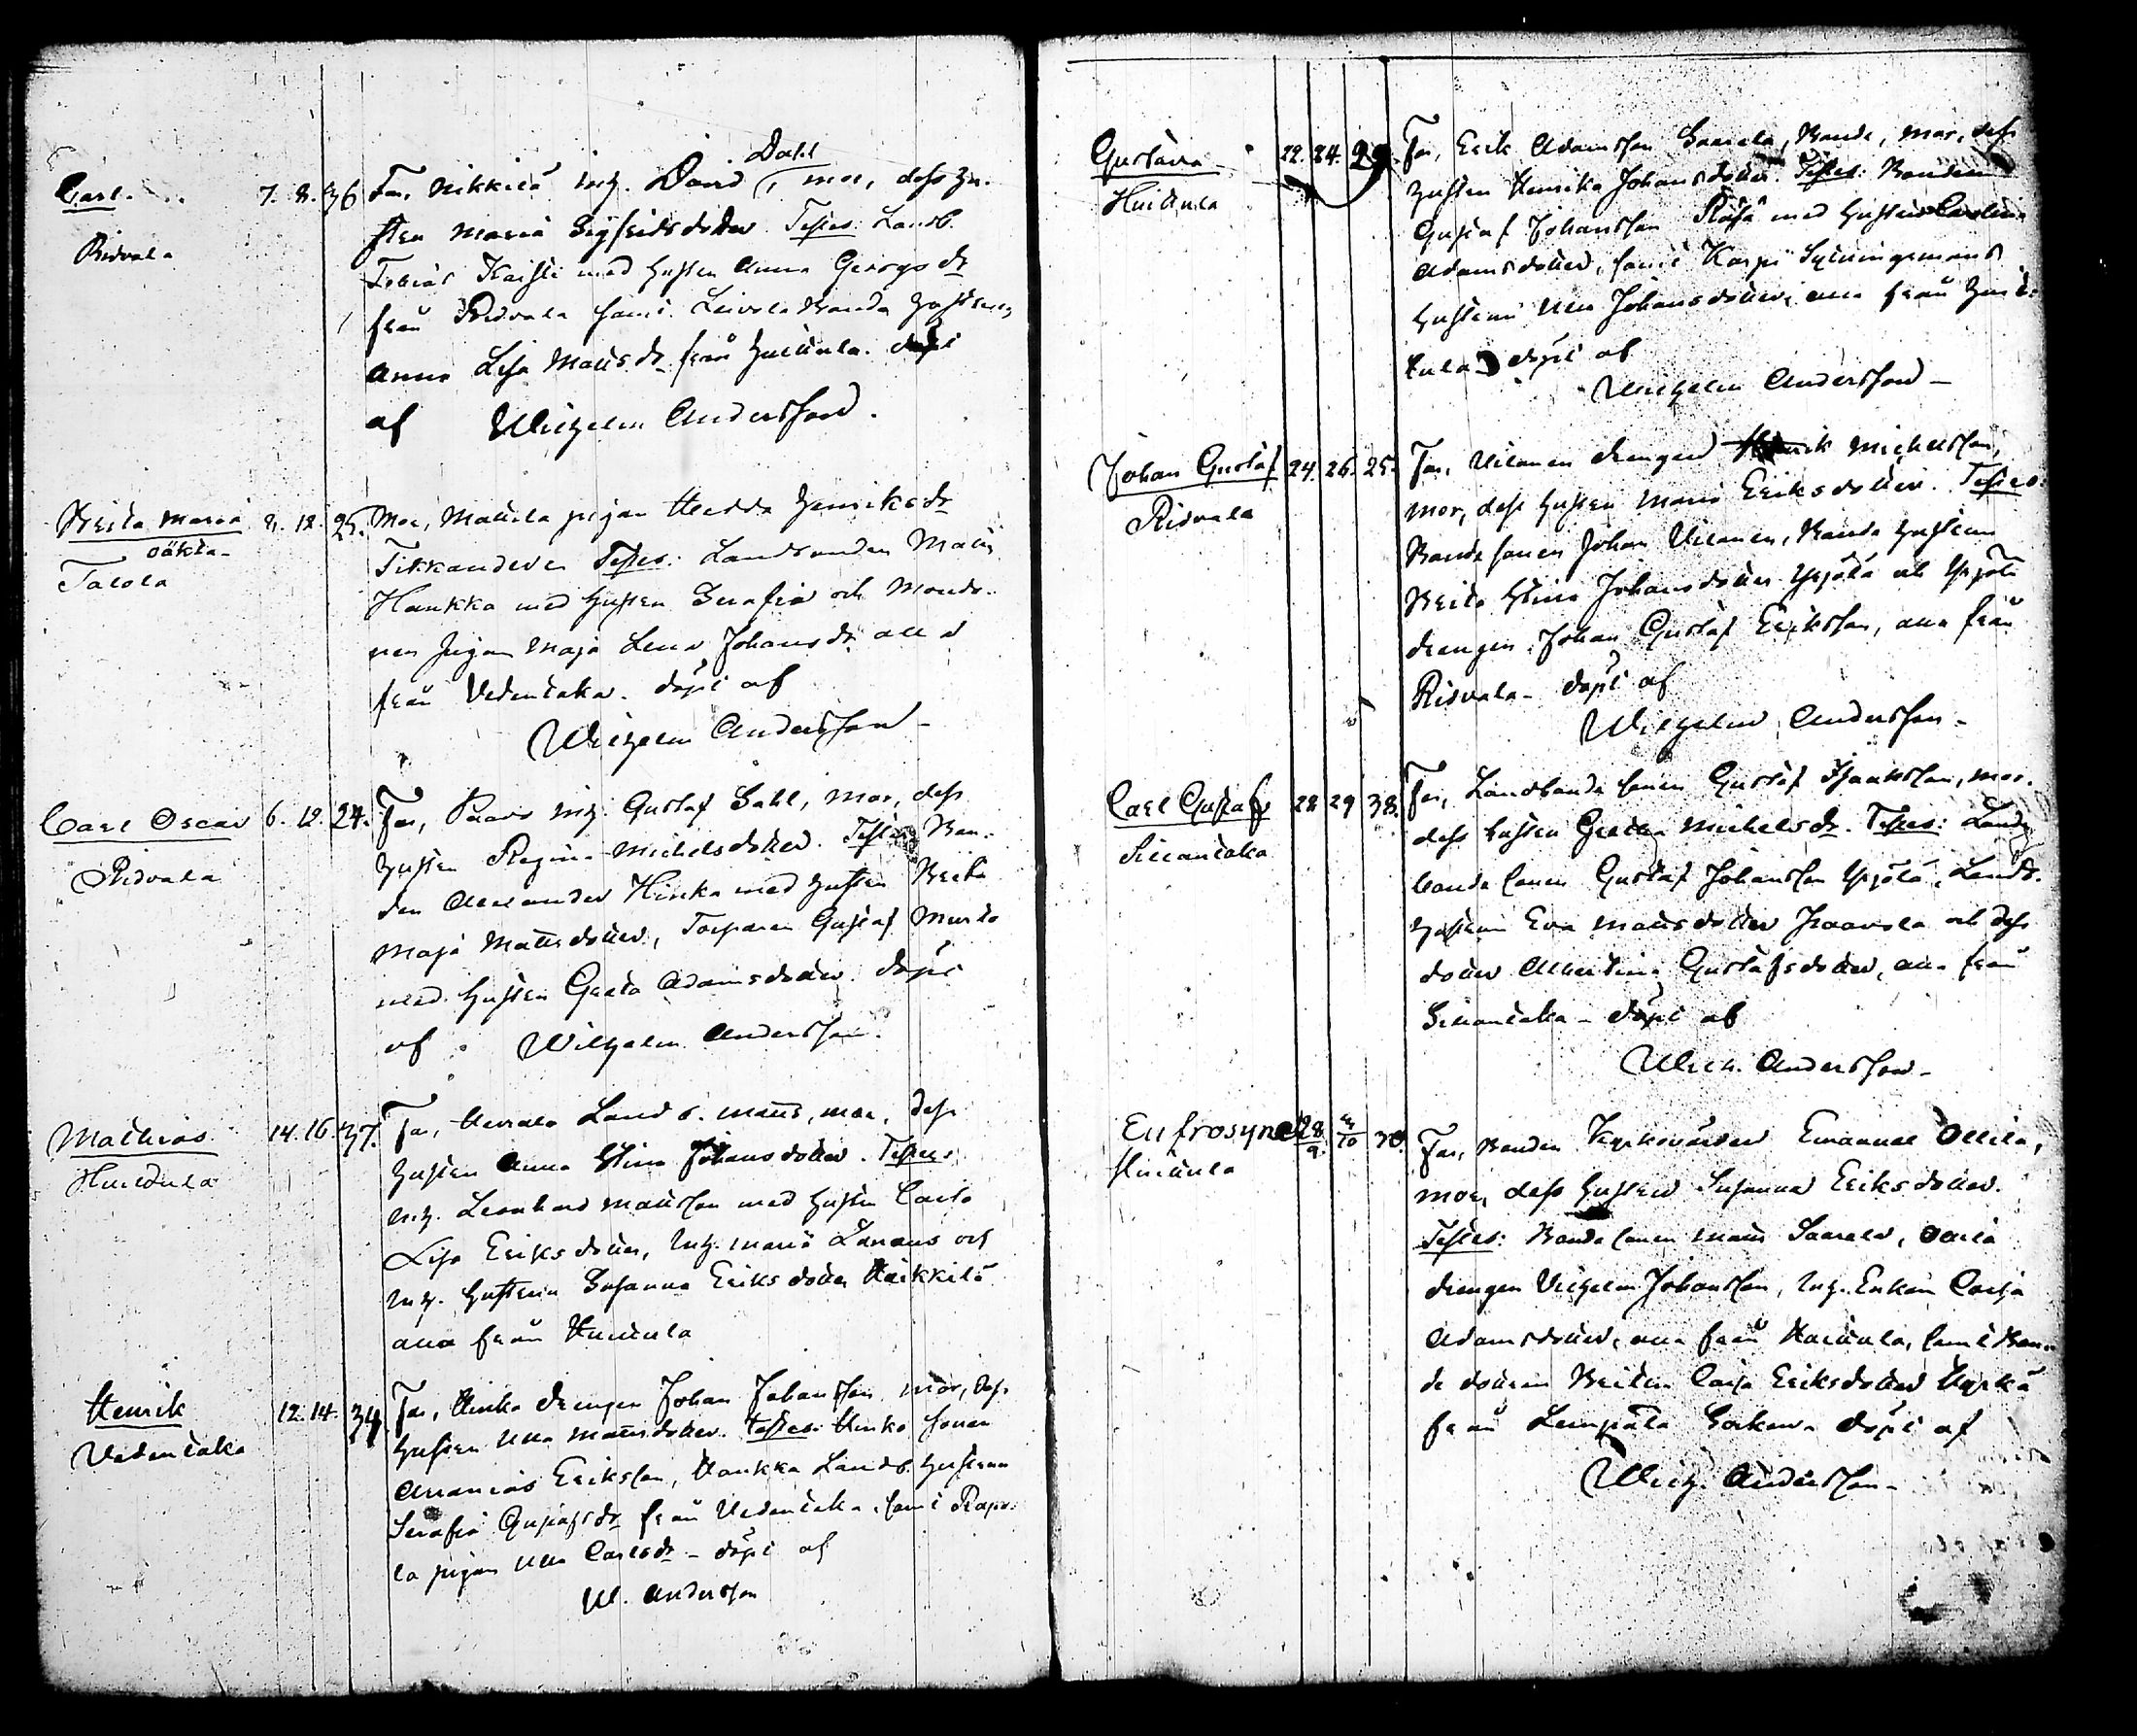 Carl
Ridvala
7. 8. 36
Far, Nikkilä inh. David Dahl, mor, dess hu-
stru Maria Sigfridsdotter. Testes: Landb.
Tobias Kaisti med hustru Anna Georgsdr
från Ridvala samt Leivola Bonde hustrun
Anna Lisa Mattsdr från Huittula. döpt
af Wilhelm Andersson.
Brita Maria
oäkta
Talola
8. 12. 25.
Mor, Mattila pigan Hedda Henriksdr
Tikkander Testes: Landbonden Matts
Haukka med hustru Serafia och
pigan Maja Lena Johansdr alla
från Vedentaka. döpt af
Wilhelm Andersson
Carl Oscar
Ridvala
6. 12. 24.
Far, Paavo inh. Gustaf Dahl, mor, dess
hustru Regina Michelsdotter. Testes: Bon-
den Alexander Hinka med hustru Brita
Maja Mattsdotter, Torparen Gustaf Murto
med hustru Greta Adamsdotter. döpt
af Wilhelm Andersson.
Mathias
Huittula
14. 16. 37.
Far, Landb. Matts, mor, dess
hustru Anna Stina Johansdotter. Testes:
inh. Leonhard Mattsson med hustru Caisa
Lisa Eriksdotter, inh. Maria och
inh. hustrun Susanna Eriksdotter Heikkilä
alla från Huittula
Henrik
Vedentaka
12. 14. 34
Far, Hinka drengen Johan Johansson mor, dess
hustru Ulla Mattsdotter. Testes: Hinka sonen
Ananias Eriksson, Haukka Landb. hustrun
Serafia Gustafsdr från Vedentaka, samt Rapo-
la pigan Ulla Carlsdr - döpt af
W. Andersson
Gustava
Huittula
22. 24. 29.
Far, Erik Adamsson Saarela, Bonde, mor, dess
hustru Henrika Johansdotter. Testes: Bonden
Gustaf Johansson med hustru Carolina
Adamsdotter, samt Karpi Sytningsmans
hustrun Ulla Johansdotter, alla från Huit-
tula döpt af
Wilhelm Andersson
Johan Gustaf
Ridvala
24. 26. 25.
Far, Uitonen drengen Michelsson,
mor, dess hustru Maria Eriksdotter. Testes:
Bondesonen Johan Uitonen, Bonde hustrun
Brita Stina Johansdotter Yrjölä och Yrjölä
drengen Johan Gustaf Eriksson, alla från
Ridvala - döpt af
Wilhelm Andersson
Carl Gustaf
Sillantaka
28 29 38.
Far, Landbonde sonen Gustaf Isaksson, mor
dess hustru Greta Michelsdr. Testes: Land-
bonde sonen Gustaf Johansson Yrjölä, Landb.
hustrun Eva Mattsdotter Paavola och dess
dotter Albertina Gustafsdotter, alla från
Sillantaka - döpt af
Wilh. Andersson
Eufrosyne
Huittula
28/9. 3/10 30.
Far, Bonden Kyrkovärden Emanuel Ollila,
mor, dess hustru Susanna Eriksdotter.
Testes: Bonde sonen Matts Saarela, Ollila
drengen Vilhelm Johansson, Inh. Enkan Caisa
Adamsdotter, alla från Huittula, samt Bon-
de dottren Brita Caisa Eriksdotter
från Lempäälä Socken döpt af
Wilh. Andersson